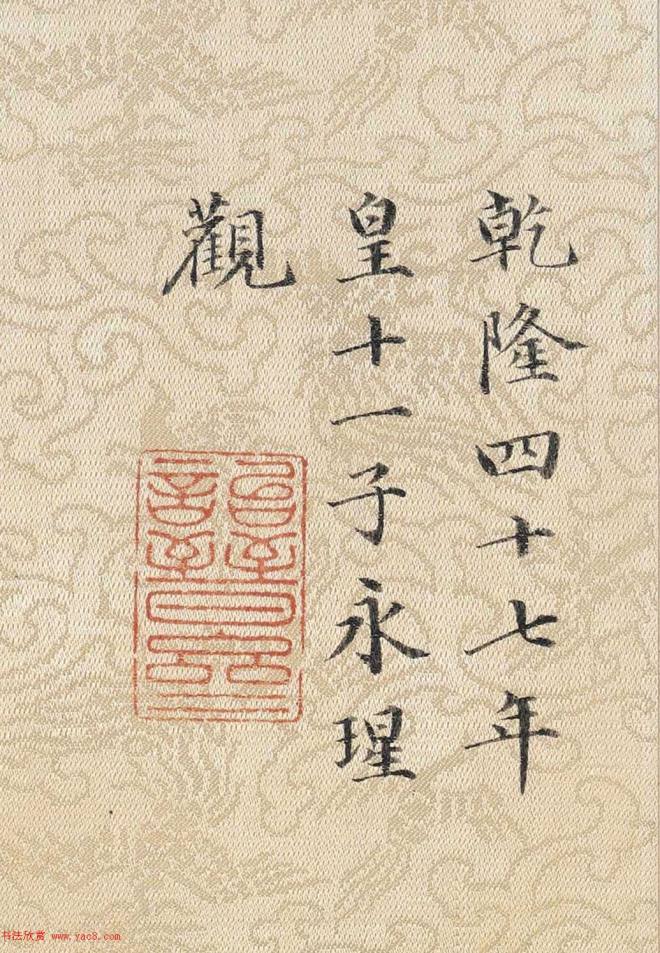 乾隆四十七年
皇十一子永瑆
觀
书法欣赏 www.yac8.com